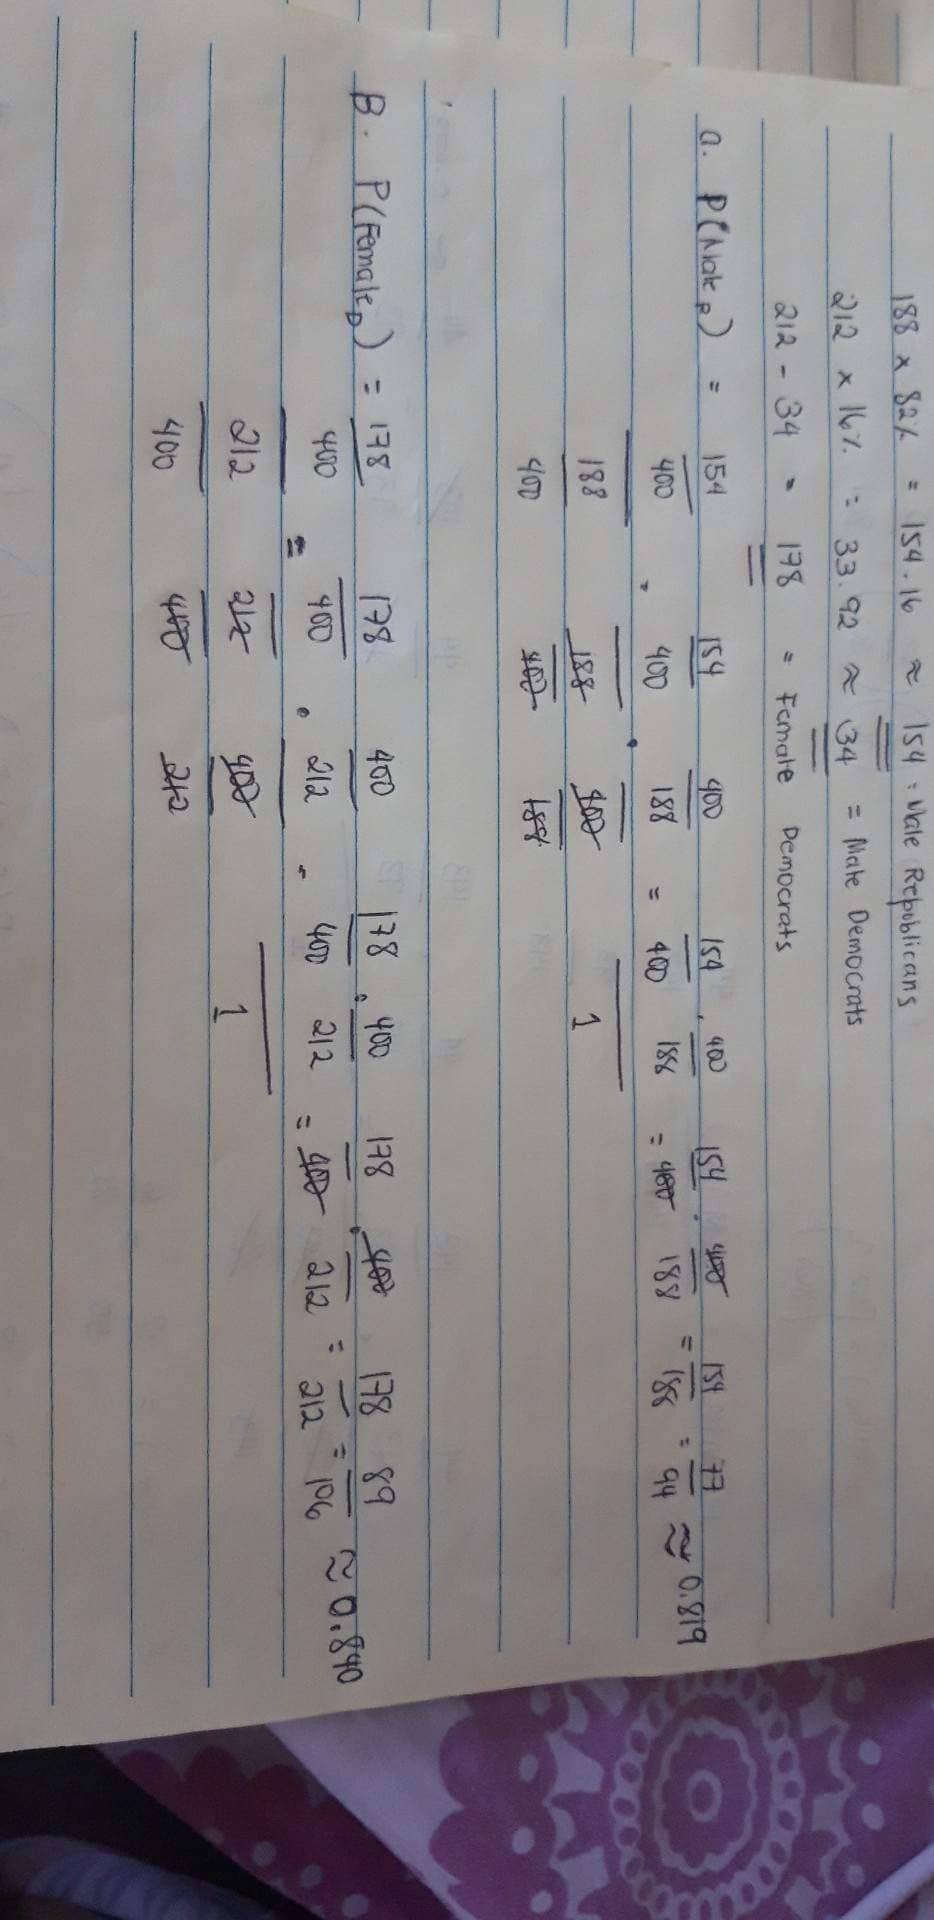 188 x 82% = 154.16 ≈ 154 = Male Repoblicans
212 x 16% = 33.92 ≈ 34 = Male Democrats
212 - 34 = 178 = Female Democrats
a. P(Male R) = 154/400 / 188/400 = 154/400 / 188/400 · 400/188 / 400/188 = 154/400 · 400/188 / 1 = 154/400 · 400/188 = 154/188 = 77/94 ≈ 0.819
B. P(Female D) = 178/400 / 212/400 = 178/400 / 212/400 · 400/212 / 400/212 = 178/400 · 400/212 / 1 = 178/400 · 400/212 = 178/212 = 89/106 ≈ 0.840